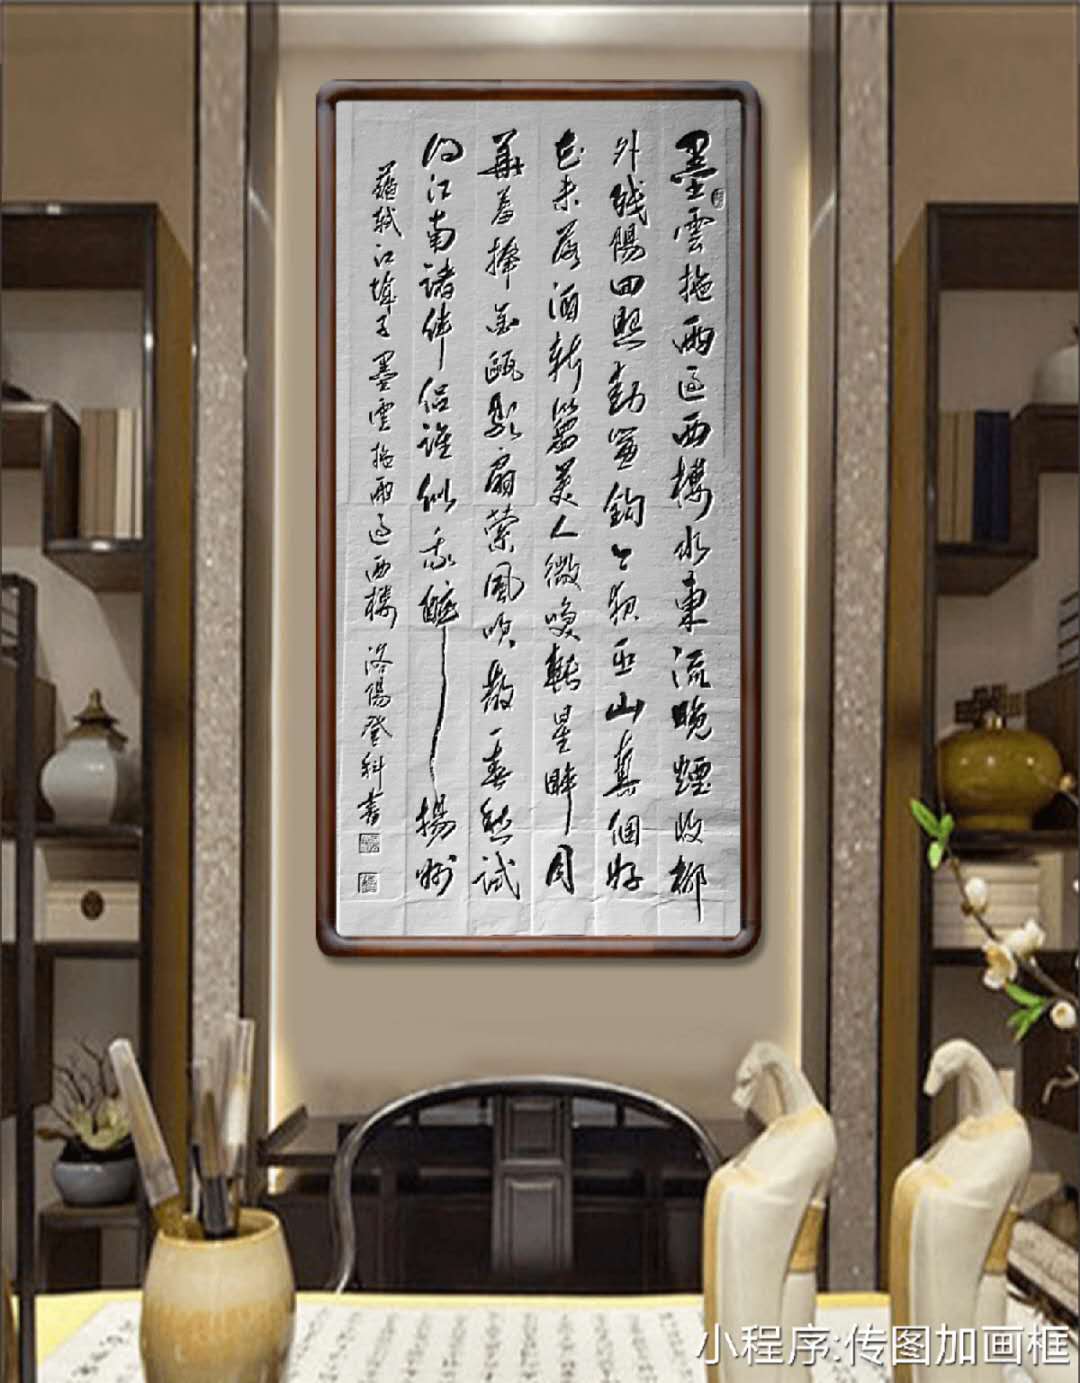 墨雲拖雨過西樓水東流晚煙收柳
外殘陽回照動簾鉤今夜巫山真個好
花未落酒新篘美人微咲轉星眸月
華羞捧金甌歌扇縈風吹散一春愁試
問江南諸伴侶誰似我醉揚州
蘇軾江城子墨雲拖雨過西樓 洛陽登科書
小程序:传图加画框